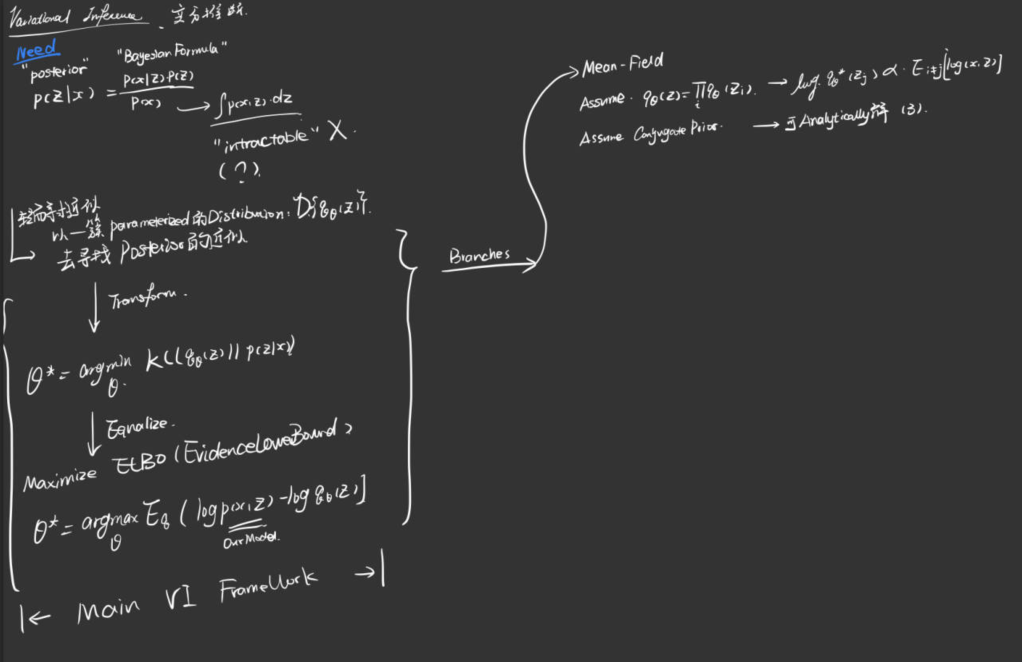 Variational Inference 、变分推断.
Need
"posterior" "Bayesian Formula"
p(z|x) = p(x|z)·p(z) / p(x) → ∫p(x,z)·dz
"intractable" X.
(?).
寻找近似
以一簇 parameterized 的 Distribution: D{q_θ(z)}.
去寻找 Posterior 的近似
Transform.
θ* = argmin_θ. KL(q_θ(z) || p(z|x))
Equalize.
Maximize ELBO (Evidence Lower Bound)
θ* = argmax_θ E_q (log p(x,z) - log q_θ(z)]
Our Model.
|← Main VI FrameWork →|
Branches
Mean-Field
Assume. q_θ(z) = ∏_i q_θ(z_i). → log. q_θ*(z_j) ∝. E_{i≠j}[log(x,z)]
Assume Conjugate Prior. → 可 Analytically 解 (3).